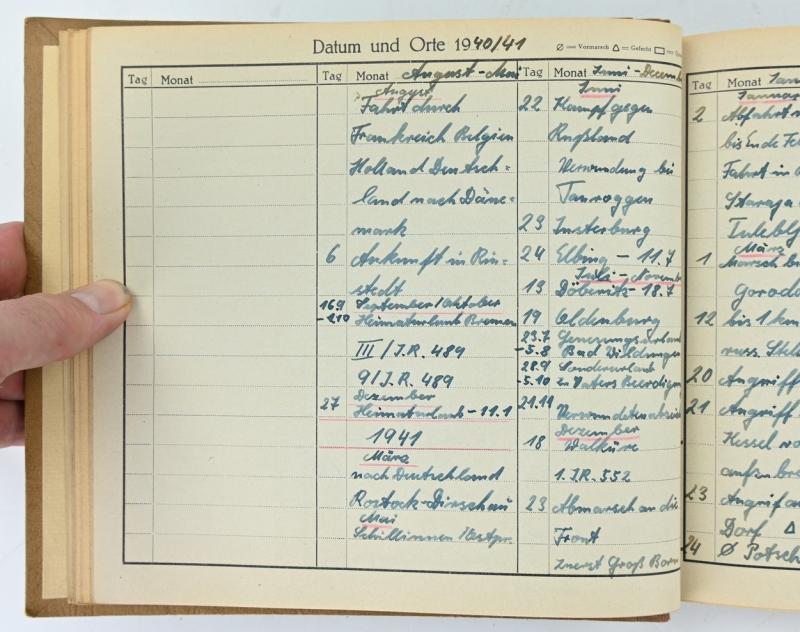 Datum und Orte 1940/41
⌀ = Vormarsch △ = Gefecht ▭ =
Tag Monat
Tag Monat August - Mai
August
Fahrt durch
Frankreich Belgien
Holland Deutsch-
land nach Däne-
mark
6 Ankunft in Rin-
stedt
16.9 September/Oktober
-2.10 Heimaturlaub Bremen
III/J.R. 489
9/J.R. 489
Dezember
27 Heimaturlaub - 11.1
1941
März
nach Deutschland
Rostock-Dirschau
Mai
Schillinnen /Ostpr.
Tag Monat Juni - Dezember
Juni
22 Kampf gegen
Rußland
Verwundung bei
Tauroggen
23 Insterburg
24 Elbing - 11.7
Juli - Novemb
13 Döberitz - 18.7
19 Oldenburg
23.7 Genesungsurlaub
-5.8 Bad Wildungen
28.9 Sonderurlaub
-5.10 zu Vaters Beerdigung
21.11 Verwundetenabzei
Dezember
18 Walküre
1. J.R. 552
23 Abmarsch an die
Front
zuerst Groß Born
Tag Monat Janu
Januar
2 Abfahrt
bis Ende Fe
Fahrt in
Staraja
Tulebl
März
1 Marsch bi
Gorod
12 bis 1 km
russ. Stell
20 Angriff
21 Angriff
Kessel vo
außen
23 Angrif
Dorf △
24 ⌀ Potsch